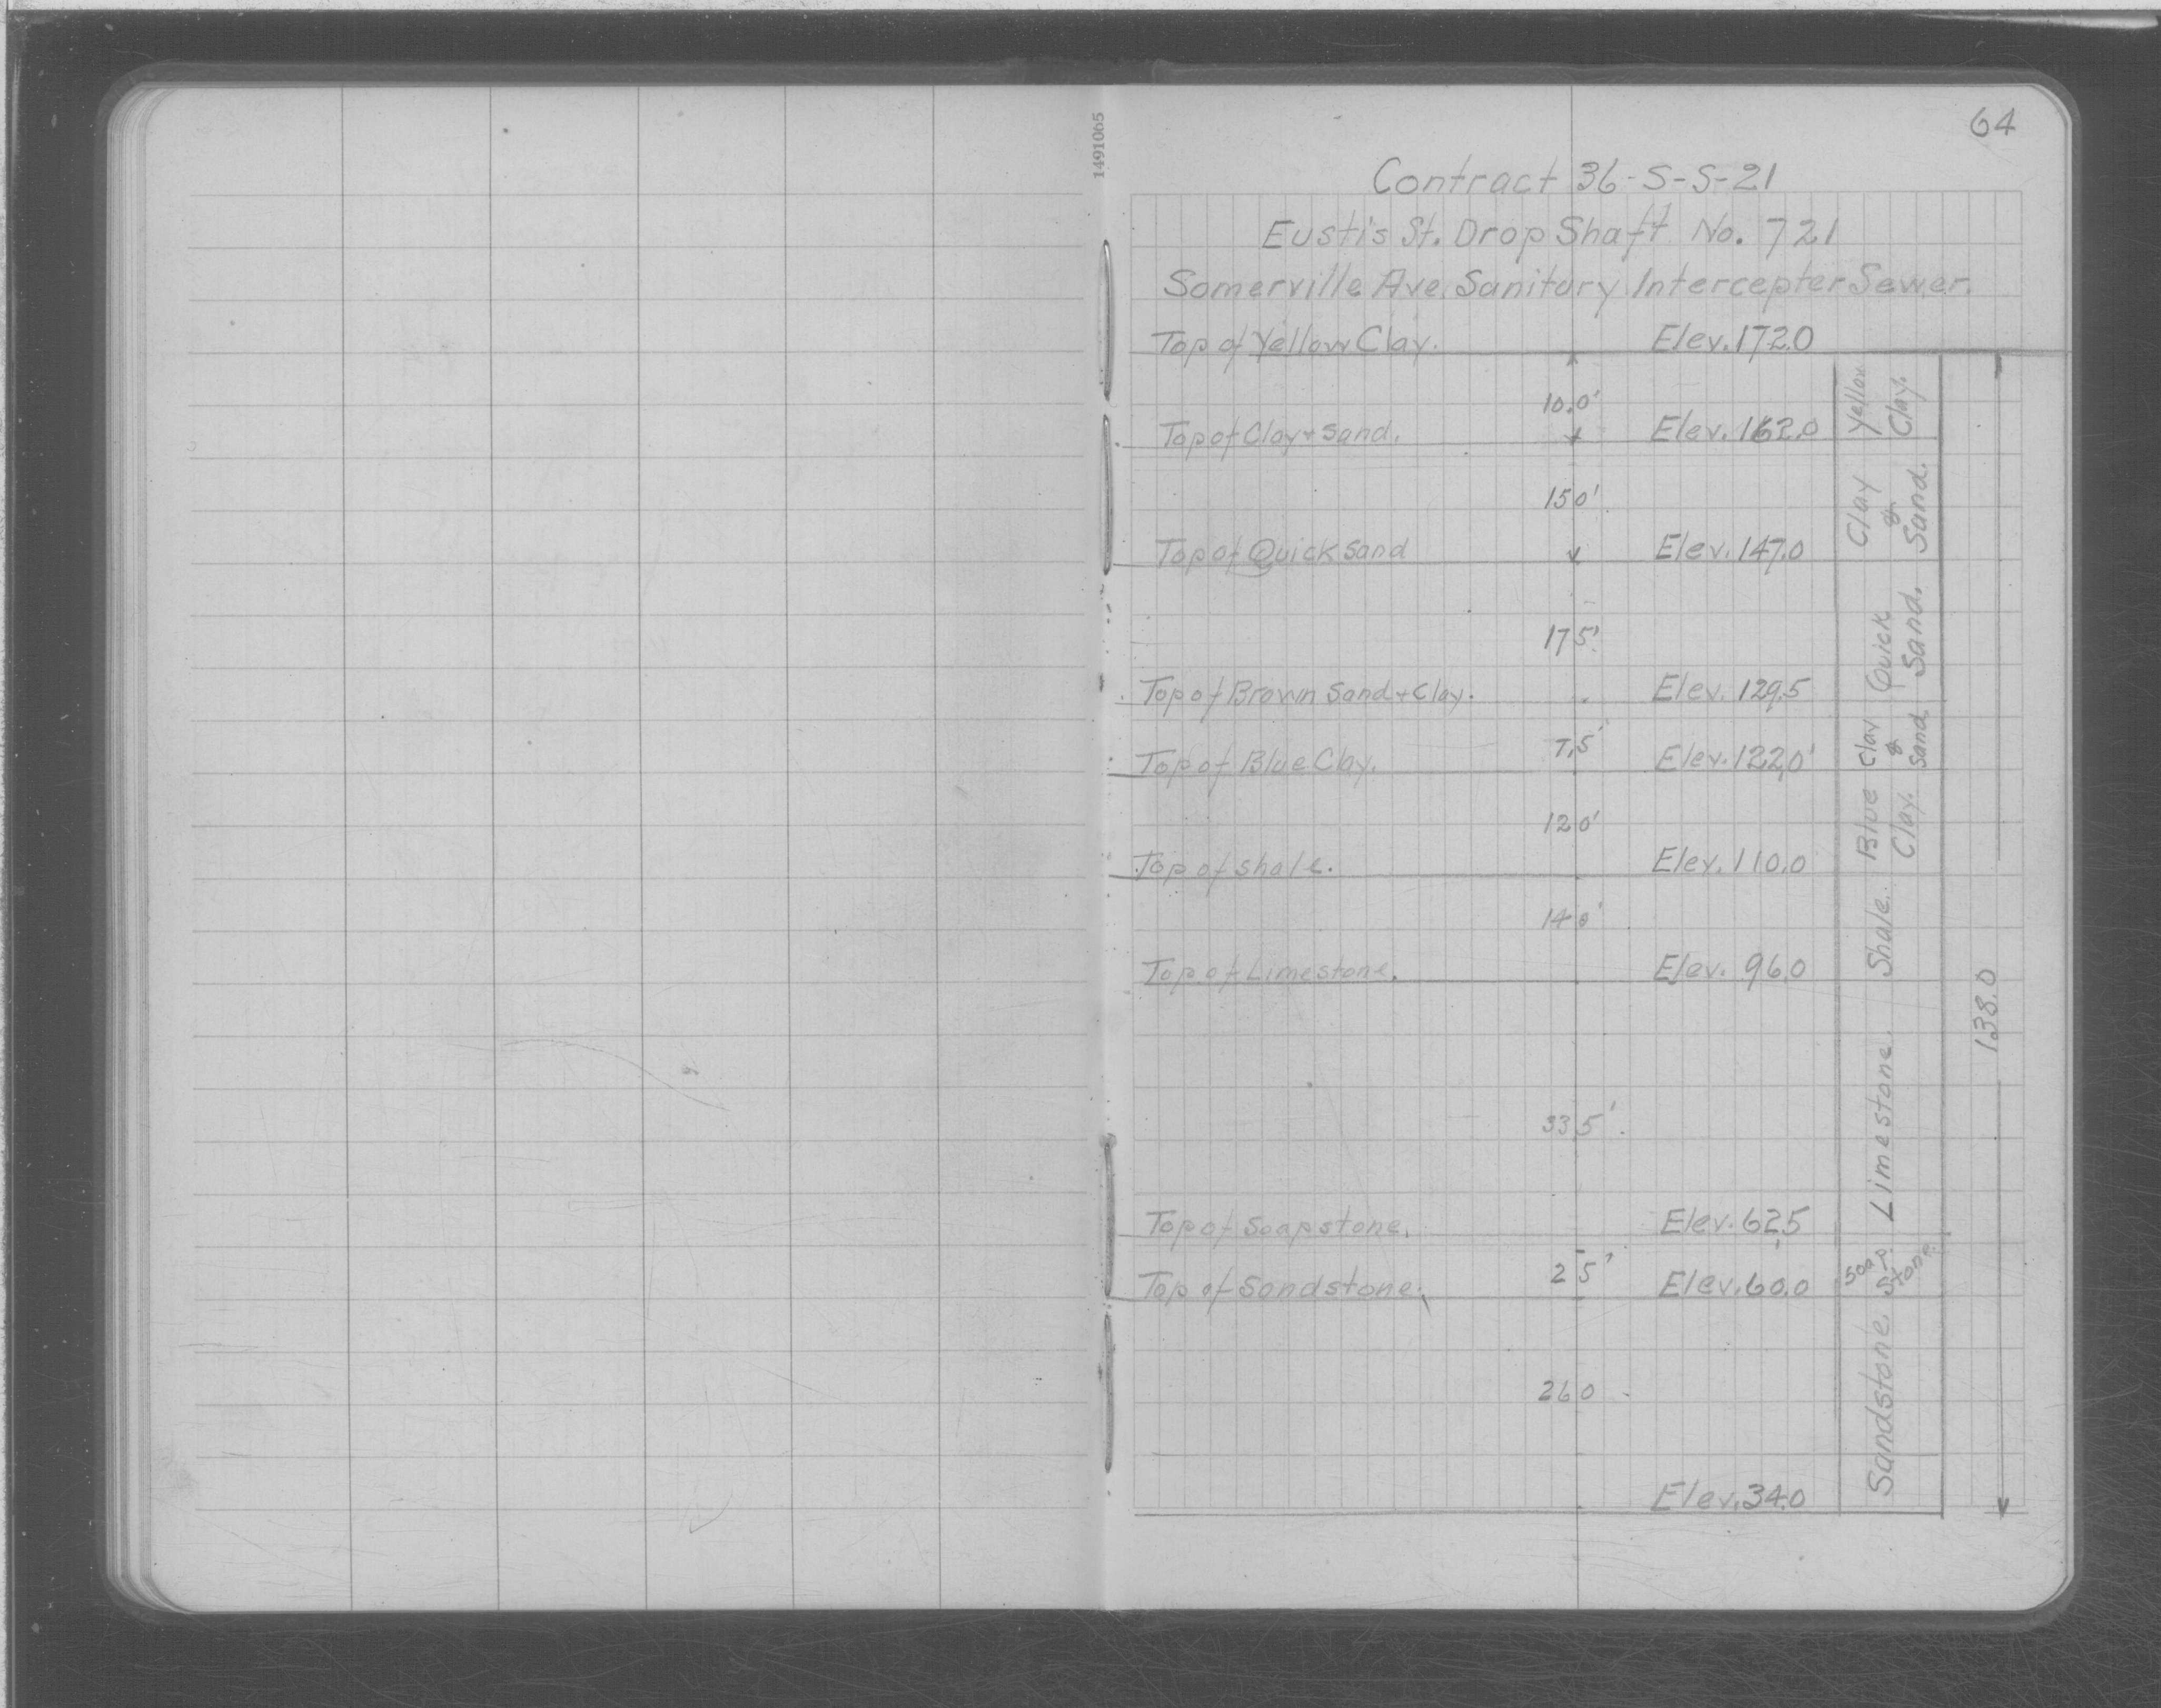 64
1491065
Contract 36-S-S-21
Eustis St. Drop Shaft No. 721
Somerville Ave. Sanitary Intercepter Sewer.
Top of Yellow Clay. Elev. 172.0
10.0'
Top of Clay + Sand. Elev. 162.0
150'
Top of Quick Sand Elev. 147.0
175'
Top of Brown Sand + Clay. Elev. 129.5
7.5'
Top of Blue Clay. Elev. 122.0'
120'
Top of Shale. Elev. 110.0
140'
Top of Limestone. Elev. 96.0
335'
Top of Soapstone. Elev. 62.5
25'
Top of Sandstone. Elev. 60.0
260
Elev. 34.0
Yellow Clay.
Clay & Sand.
Quick Sand.
Clay & Sand
Blue Clay.
Shale.
Limestone.
Soap Stone.
Sandstone.
138.0